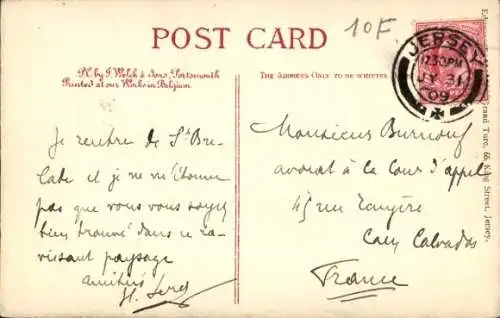 POST CARD
10F
Ph. by J. Welch & Sons, Portsmouth
Printed at our Works in Belgium
THE ADDRESS ONLY TO BE WRITTEN
JERSEY
12.30PM
JY 31
09
Grand Turc, 66 King Street, Jersey.
Je rentre de St Bre-
lade et je ne m'étonne
pas que vous vous soyez
bien trouvé dans ce ra-
vissant paysage
amitiés
H.
Monsieur Burnouf
avocat à la Cour d'appel
rue
Caen Calvados
France